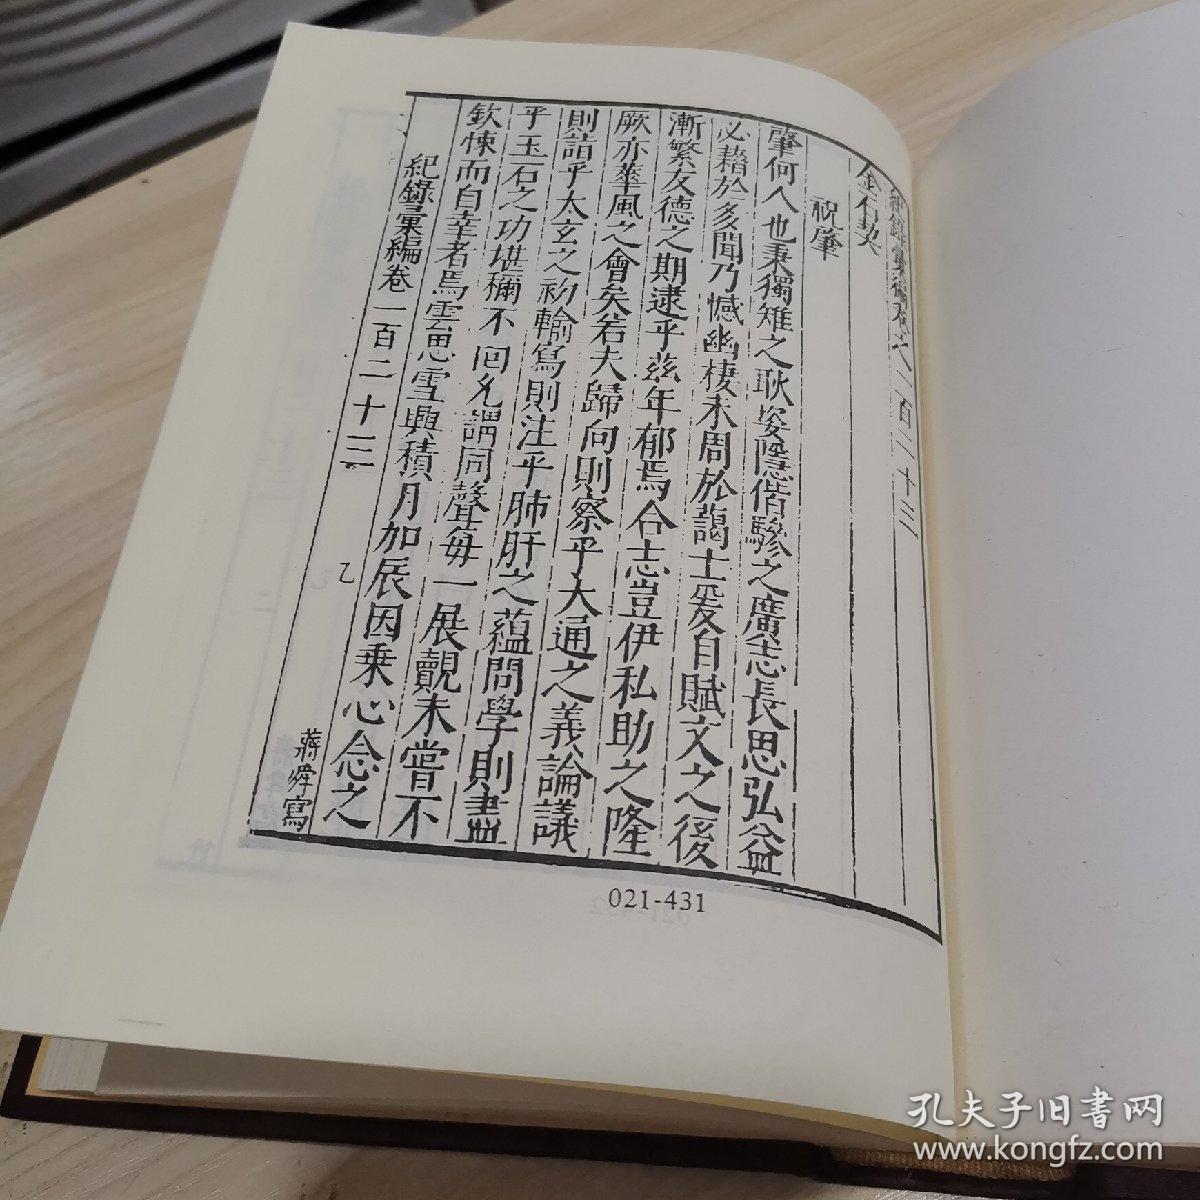 紀錄彙編卷之一百二十三
金石契
祝肇
肇何人也秉獨雉之耿姿隱偕驂之廣志長思弘益
必藉於多聞乃憾幽棲未周於藹士爰自賦文之後
漸繁友德之期逮乎茲年郁焉合志豈伊私助之隆
厥亦華風之會矣若夫歸向則察乎大通之義論議
則詣乎太玄之初輸寫則注乎肺肝之蘊問學則盡
乎玉石之功堪禰不回允謂同聲每一展覿未嘗不
欽悚而自幸者焉雲思雪興積月加辰因乗心念之
紀錄彙編卷一百二十三
乙
蔣舜寫
021-431
孔夫子旧書网
www.kongfz.com